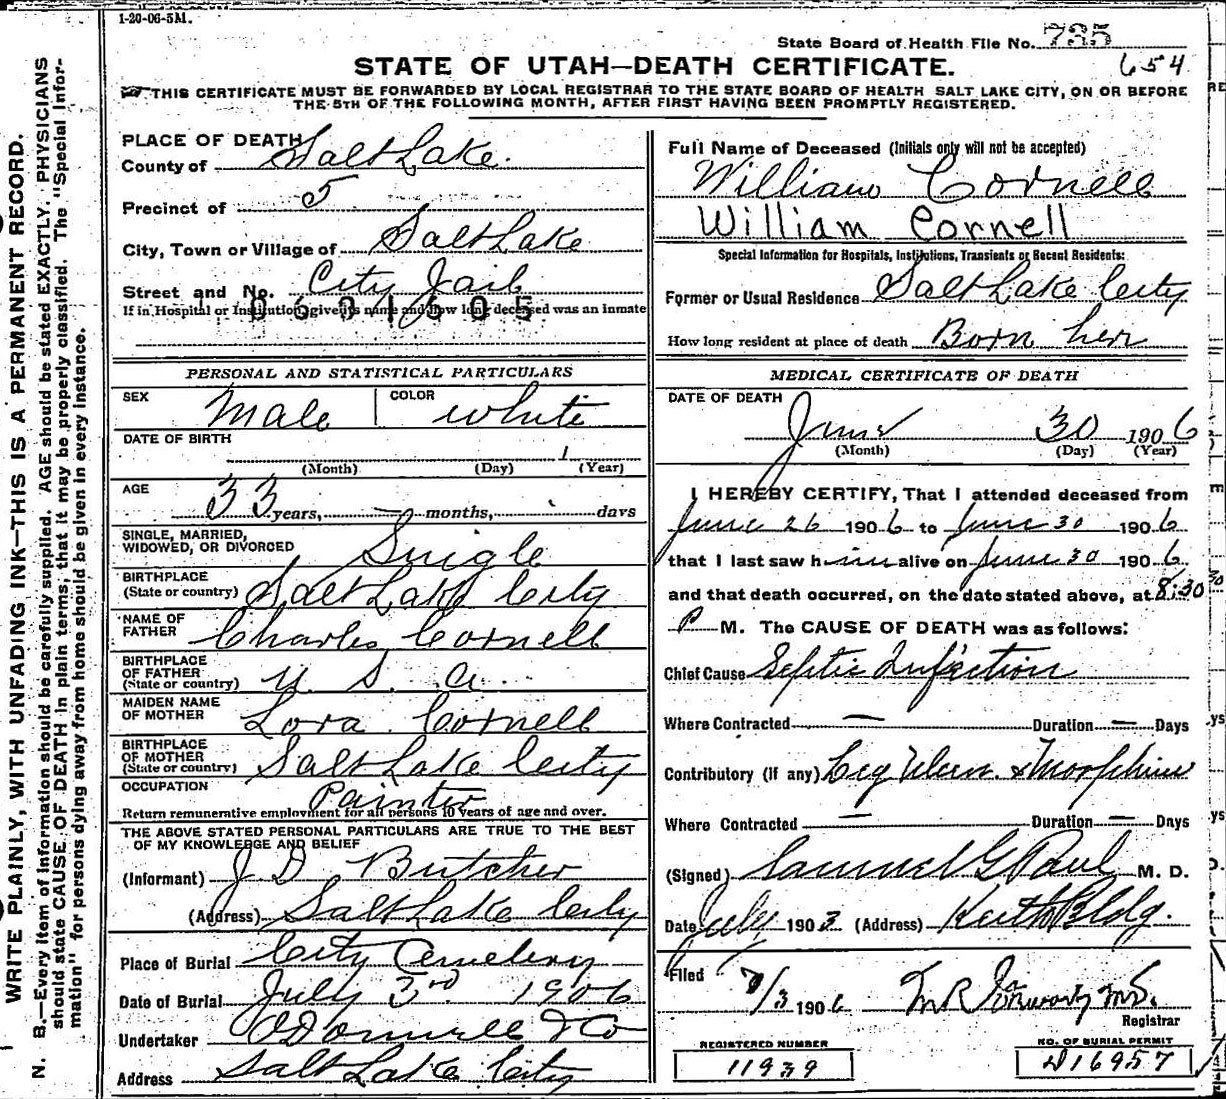 1-20-06-5M.
State Board of Health File No. 735
654
STATE OF UTAH—DEATH CERTIFICATE.
THIS CERTIFICATE MUST BE FORWARDED BY LOCAL REGISTRAR TO THE STATE BOARD OF HEALTH SALT LAKE CITY, ON OR BEFORE
THE 5TH OF THE FOLLOWING MONTH, AFTER FIRST HAVING BEEN PROMPTLY REGISTERED.
WRITE PLAINLY, WITH UNFADING INK—THIS IS A PERMANENT RECORD.
N. B.—Every item of information should be carefully supplied. AGE should be stated EXACTLY. PHYSICIANS
should state CAUSE OF DEATH in plain terms, that it may be properly classified. The "Special Infor-
mation" for persons dying away from home should be given in every instance.
PLACE OF DEATH
County of Salt Lake.
Precinct of 5
City, Town or Village of Salt Lake
Street and No. City Jail
If in Hospital or Institution, give its name and how long deceased was an inmate
0601505
PERSONAL AND STATISTICAL PARTICULARS
SEX Male COLOR white
DATE OF BIRTH
(Month) (Day) (Year)
AGE 33 years, — months, days
SINGLE, MARRIED,
WIDOWED, OR DIVORCED Single
BIRTHPLACE
(State or country) Salt Lake City
NAME OF
FATHER Charles Cornell
BIRTHPLACE
OF FATHER
(State or country) U. S. a.
MAIDEN NAME
OF MOTHER Lora Cornell
BIRTHPLACE
OF MOTHER
(State or country) Salt Lake City
OCCUPATION Painter
Return remunerative employment for all persons 10 years of age and over.
THE ABOVE STATED PERSONAL PARTICULARS ARE TRUE TO THE BEST
OF MY KNOWLEDGE AND BELIEF
(Informant) J D Butcher
(Address) Salt Lake City
Place of Burial City Cemetery
Date of Burial July 3rd 1906
Undertaker O'Donnell & Co
Address Salt Lake City
Full Name of Deceased (Initials only will not be accepted)
William Cornell
William Cornell
Special Information for Hospitals, Institutions, Transients or Recent Residents:
Former or Usual Residence Salt Lake City
How long resident at place of death Born her
MEDICAL CERTIFICATE OF DEATH
DATE OF DEATH
June 30 1906
(Month) (Day) (Year)
I HEREBY CERTIFY, That I attended deceased from
June 26 1906 to June 30 1906
that I last saw him alive on June 30 1906
and that death occurred, on the date stated above, at 8:30
P M. The CAUSE OF DEATH was as follows:
Chief Cause Septic Infection
Where Contracted — Duration — Days
Contributory (If any) Leg Ulcer & Morphine
Where Contracted — Duration — Days
(Signed) Samuel G Paul M. D.
Date July 1903 (Address) Keith Bldg.
Filed 7/3 1906
Registrar
REGISTERED NUMBER
11939
NO. OF BURIAL PERMIT
D16957